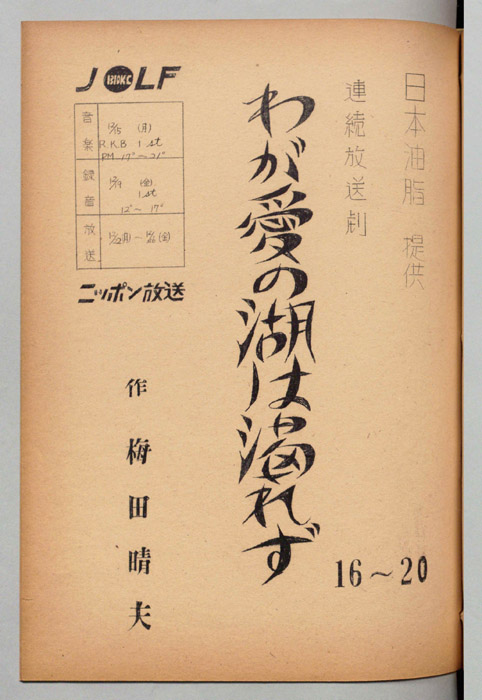 日本油脂 提供
連続放送劇
わが愛の湖は涸れず
16～20
JOLF
1310KC
音楽 12/15 (月)
R.K.B 1st
PM 17°～21°
録音 12/19 (金)
1st
12°～17°
放送 12/22(月)～12/26(金)
ニッポン放送
作 梅田晴夫